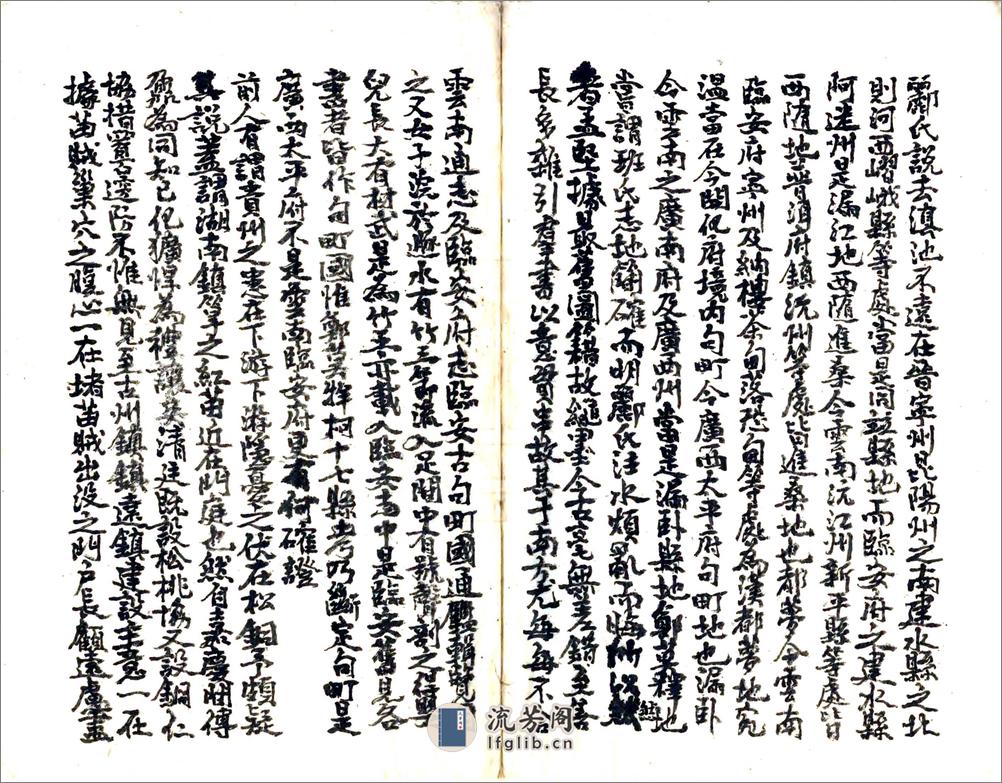 酈氏說去滇池不遠在晉寧州昆陽州之南建水縣之北
則河西嶍峨縣等處當是同並縣地而臨安府之建水縣
阿迷州是漏江地西隨進桑今雲南沅江州新平縣等處皆
西隨地普洱府鎮沅州等處皆進桑地也都夢今雲南
臨安府寧州及納樓茶甸落恐甸等處為漢都夢地宛
溫當在今開化府境內句町今廣西太平府句町地也漏卧
今雲南之廣南府及廣西州當是漏卧縣地鄭莫釋地
嘗謂班氏志地簡確而明酈氏注水煩亂而悔所以然
者孟堅據見聚舊圖籍故繩墨今古毫無差錯至善
長多雜引羣書以意貫串故其于南方尤每每不
雲南通志及臨安府志臨安古句町國通志輯覽
之又女子浣於遯水有竹三節流入足間中有號聲剖之得嬰
兒長大有材武是為竹王亦載入臨安志中是臨安舊見各
書者皆作句町國惟鄭莫牂柯十七縣考乃斷定句町是
廣西太平府不是雲南臨安府更有何確證
前人有謂貴州之患在下游下游隱憂之伏在松銅予頗疑
其說蓋謂湖南鎮筸之紅苗近在門庭也然自嘉慶間傅
鼐為同知已化獷悍為禮讓矣清廷既設松桃協又設銅仁
協措置邊防不惟無見至古州鎮鎮遠鎮建設主意一在
據苗賊巢穴之腹心一在堵苗賊出沒之門戶長顧遠慮盡
流芳阁
lfglib.cn